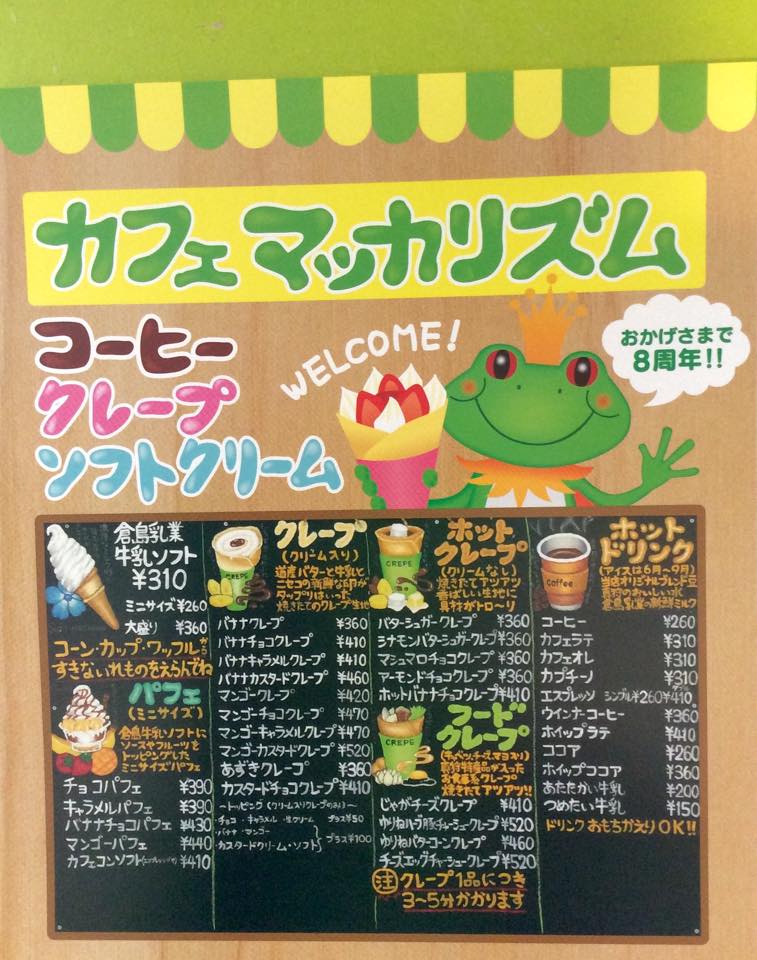 カフェ マッカリズム
コーヒー
クレープ
ソフトクリーム
WELCOME!
おかげさまで
8周年!!
倉島乳業
牛乳ソフト
¥310
ミニサイズ ¥260
大盛り ¥360
コーン・カップ・ワッフルから
すきないれものをえらんでね
パフェ
(ミニサイズ)
倉島牛乳ソフトに
ソースやフルーツを
トッピングした
ミニサイズパフェ
チョコパフェ ¥390
キャラメルパフェ ¥390
バナナチョコパフェ ¥430
マンゴーパフェ ¥440
カフェコンソフト ¥410
クレープ
(クリーム入り)
CREPE
道産バターと牛乳と
ニセコの新鮮な卵が
タップリはいった
焼きたてのクレープ生地
バナナクレープ ¥360
バナナチョコクレープ ¥410
バナナキャラメルクレープ ¥410
バナナカスタードクレープ ¥460
マンゴークレープ ¥420
マンゴーチョコクレープ ¥470
マンゴーキャラメルクレープ ¥470
マンゴーカスタードクレープ ¥520
あずきクレープ ¥360
カスタードチョコクレープ ¥410
~トッピング(クリーム入りクレープのみ)~
チョコ・キャラメル・生クリーム プラス¥50
バナナ・マンゴー
カスタードクリーム・ソフト プラス¥100
ホット
クレープ
(クリームなし)
CREPE
焼きたてアツアツ
香ばしい生地に
具材がトローリ
バターシュガークレープ ¥360
シナモンバターシュガークレープ ¥360
マシュマロチョコクレープ ¥360
アーモンドチョコクレープ ¥360
ホットバナナチョコクレープ ¥410
フード
クレープ
CREPE
(キャベツ・チーズ・マヨ入り)
真狩特産品が入った
お食事系クレープ
焼きたてアツアツ!!
じゃがチーズクレープ ¥410
ゆりねハーブ豚チャーシュークレープ ¥520
ゆりねバターコーンクレープ ¥460
チーズエッグチャーシュークレープ ¥520
注 クレープ1品につき
3~5分かかります
ホット
ドリンク
(アイスは6月~9月)
Coffee
当店オリジナルブレンド豆
真狩のおいしい水
倉島乳業の新鮮ミルク
コーヒー ¥260
カフェラテ ¥310
カフェオレ ¥310
カプチーノ ¥310
エスプレッソ シングル¥260 ダブル¥410
ウインナーコーヒー ¥360
ホイップラテ ¥410
ココア ¥260
ホイップココア ¥360
あたたかい牛乳 ¥200
つめたい牛乳 ¥150
ドリンクおもちがえりOK!!